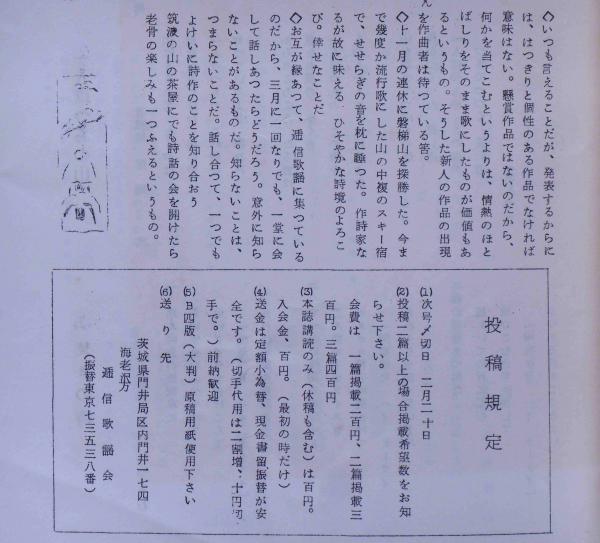 ◇いつも言えることだが、発表するからに
は、はつきりと個性のある作品でなければ
意味はない。懸賞作品ではないのだから、
何かを当てこむというよりは、情熱のほと
ばしりをそのまま歌にしたものが価値もあ
るというもの。そうした新人の作品の出現
を作曲者は待つている筈。
◇十一月の連休に磐梯山を探勝した。今ま
で幾度か流行歌にした山の中複のスキー宿
で、せせらぎの音を枕に睡つた。作詩家な
るが故に味える、ひそやかな詩境のよろこ
び。倖せなことだ
◇お互が縁あつて、逓信歌謡に集つている
のだから、三月に一回なりでも、一堂に会
して話しあつたらどうだろう。意外に知ら
ないことがあるものだ。知らないことは、
つまらないことだ。話し合つて、一つでも
よけいに詩作のことを知り合おう
筑波の山の茶屋にでも詩話の会を開けたら
老骨の楽しみも一つふえるというもの。
投稿規定
(1)次号〆切日　二月二十日
(2)投稿二篇以上の場合掲載希望数をお知
らせ下さい。
会費は　一篇掲載二百円、二篇掲載三
百円。三篇四百円
(3)本誌講読のみ（休稿も含む）は百円。
入会金、百円。（最初の時だけ）
(4)送金は定額小為替、現金書留、振替が安
全です。（切手代用は二割増、十円切
手で。）前納歓迎
(5)B四版（大判）原稿用紙使用下さい
(6)送り先
茨城県門井局区内門井一七四
海老沢方
逓信歌謡会
（振替東京七三五三八番）